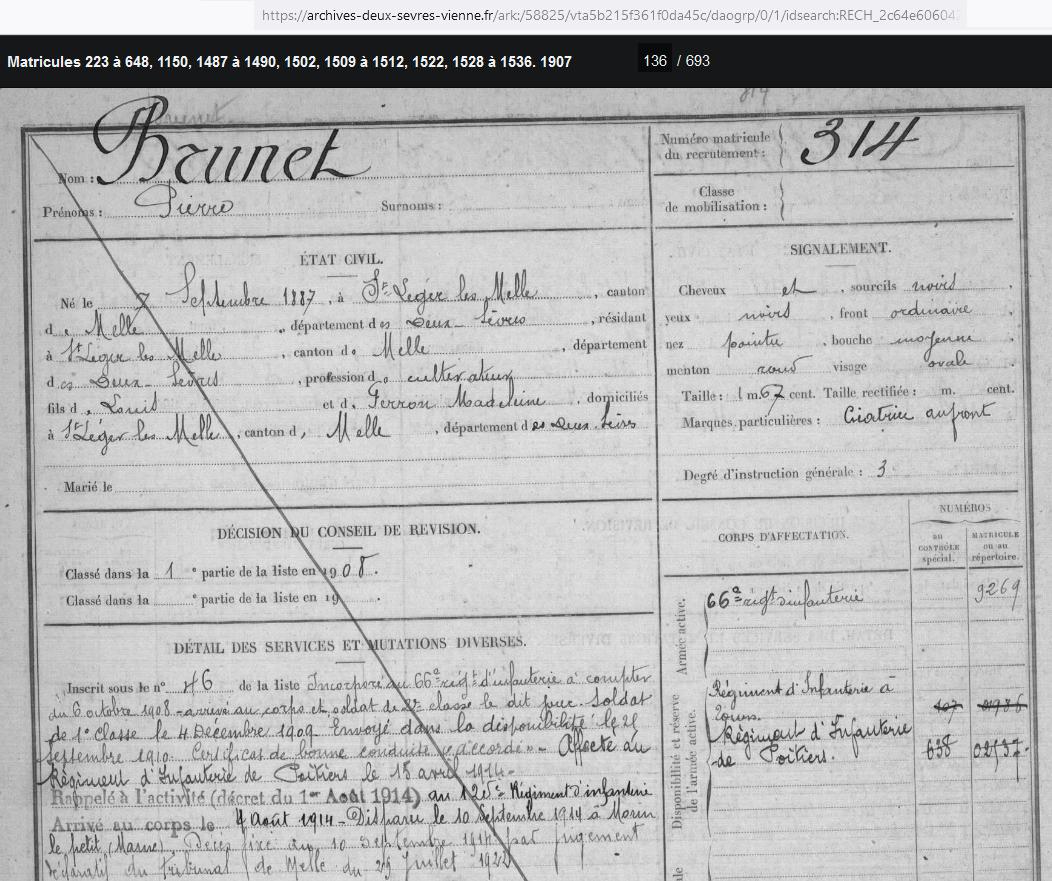 https://archives-deux-sevres-vienne.fr/ark:/58825/vta5b215f361f0da45c/daogrp/0/1/idsearch:RECH_2c64e60604
Matricules 223 à 648, 1150, 1487 à 1490, 1502, 1509 à 1512, 1522, 1528 à 1536. 1907 136 / 693
314
Nom : Brunet
Prénoms : Pierre Surnoms :
Numéro matricule du recrutement : 314
Classe de mobilisation :
ÉTAT CIVIL.
Né le 7 Septembre 1887, à St Léger les Melle, canton
de Melle, département des Deux-Sèvres, résidant
à St Léger les Melle, canton de Melle, département
des Deux-Sèvres, profession de cultivateur
fils de Louis et de Perron Madeleine, domiciliés
à St Léger les Melle, canton d, Melle, département des Deux-Sèvres
Marié le
SIGNALEMENT.
Cheveux et, sourcils noirs,
yeux noirs, front ordinaire
nez pointu, bouche moyenne
menton rond visage ovale
Taille : 1 m. 67 cent. Taille rectifiée : m. cent.
Marques particulières : Cicatrice au front
Degré d'instruction générale : 3
DÉCISION DU CONSEIL DE REVISION.
Classé dans la 1e partie de la liste en 1908.
Classé dans la e partie de la liste en 19
DÉTAIL DES SERVICES ET MUTATIONS DIVERSES.
Inscrit sous le n° 46 de la liste Incorporé au 66e régt d'infanterie à compter
du 6 octobre 1908 - arrivé au corps et soldat de 2e classe le dit jour. Soldat
de 1e Classe le 4 Décembre 1909. Envoyé dans la disponibilité le 25
septembre 1910. Certificat de bonne conduite « accordé » - Affecté au
Régiment d'Infanterie de Poitiers le 15 avril 1914 -
Rappelé à l'activité (décret du 1er Août 1914) au 125e Régiment d'infanterie
Arrivé au corps le 4 Août 1914 - Disparu le 10 Septembre 1914 à Morin
le petit (Marne) Décès fixé au 10 Septembre 1914 par jugement
déclaratif du tribunal de Melle du 29 Juillet 1922
CORPS D'AFFECTATION.
NUMÉROS
au CONTRÔLE spécial.
MATRICULE ou au répertoire.
Armée active.
66e régt d'infanterie 9269
Disponibilité et réserve de l'armée active.
Régiment d'Infanterie à
Tours.
Régiment d'Infanterie
de Poitiers. 638